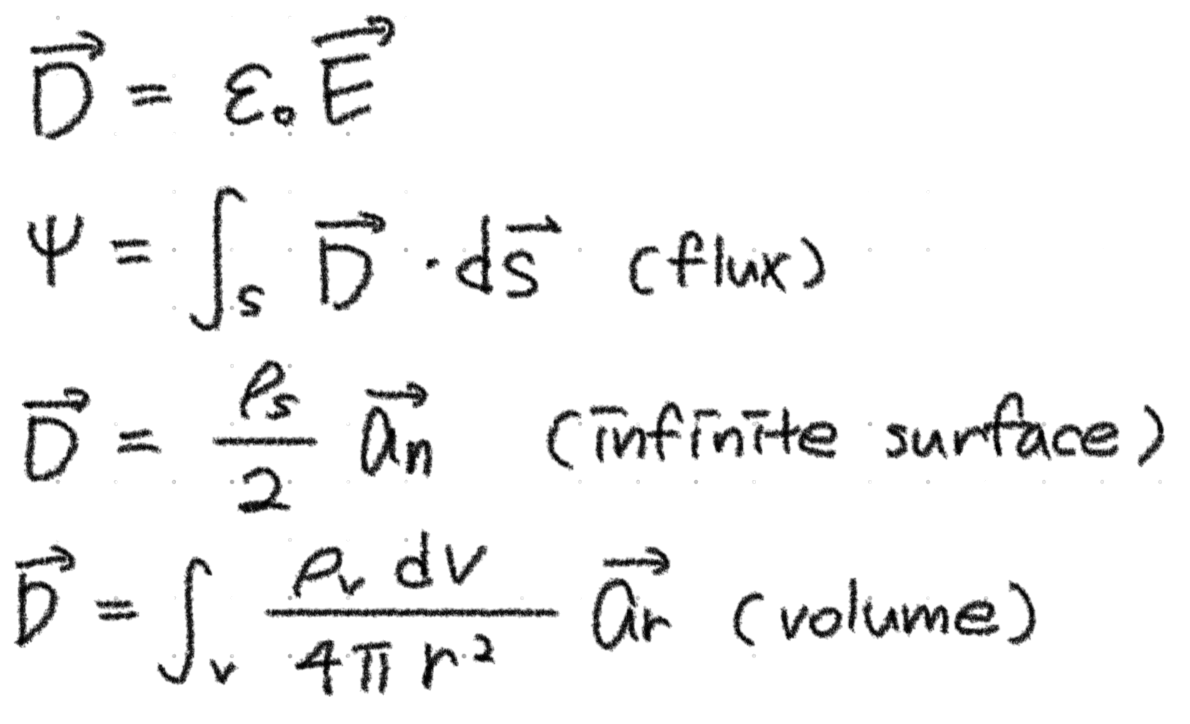 $\vec{D} = \varepsilon_0 \vec{E}$
$\psi = \int_S \vec{D} \cdot d\vec{s}$ (flux)
$\vec{D} = \frac{\rho_s}{2} \vec{a_n}$ (infinite surface)
$\vec{D} = \int_v \frac{\rho_v \, dv}{4\pi r^2} \vec{a_r}$ (volume)